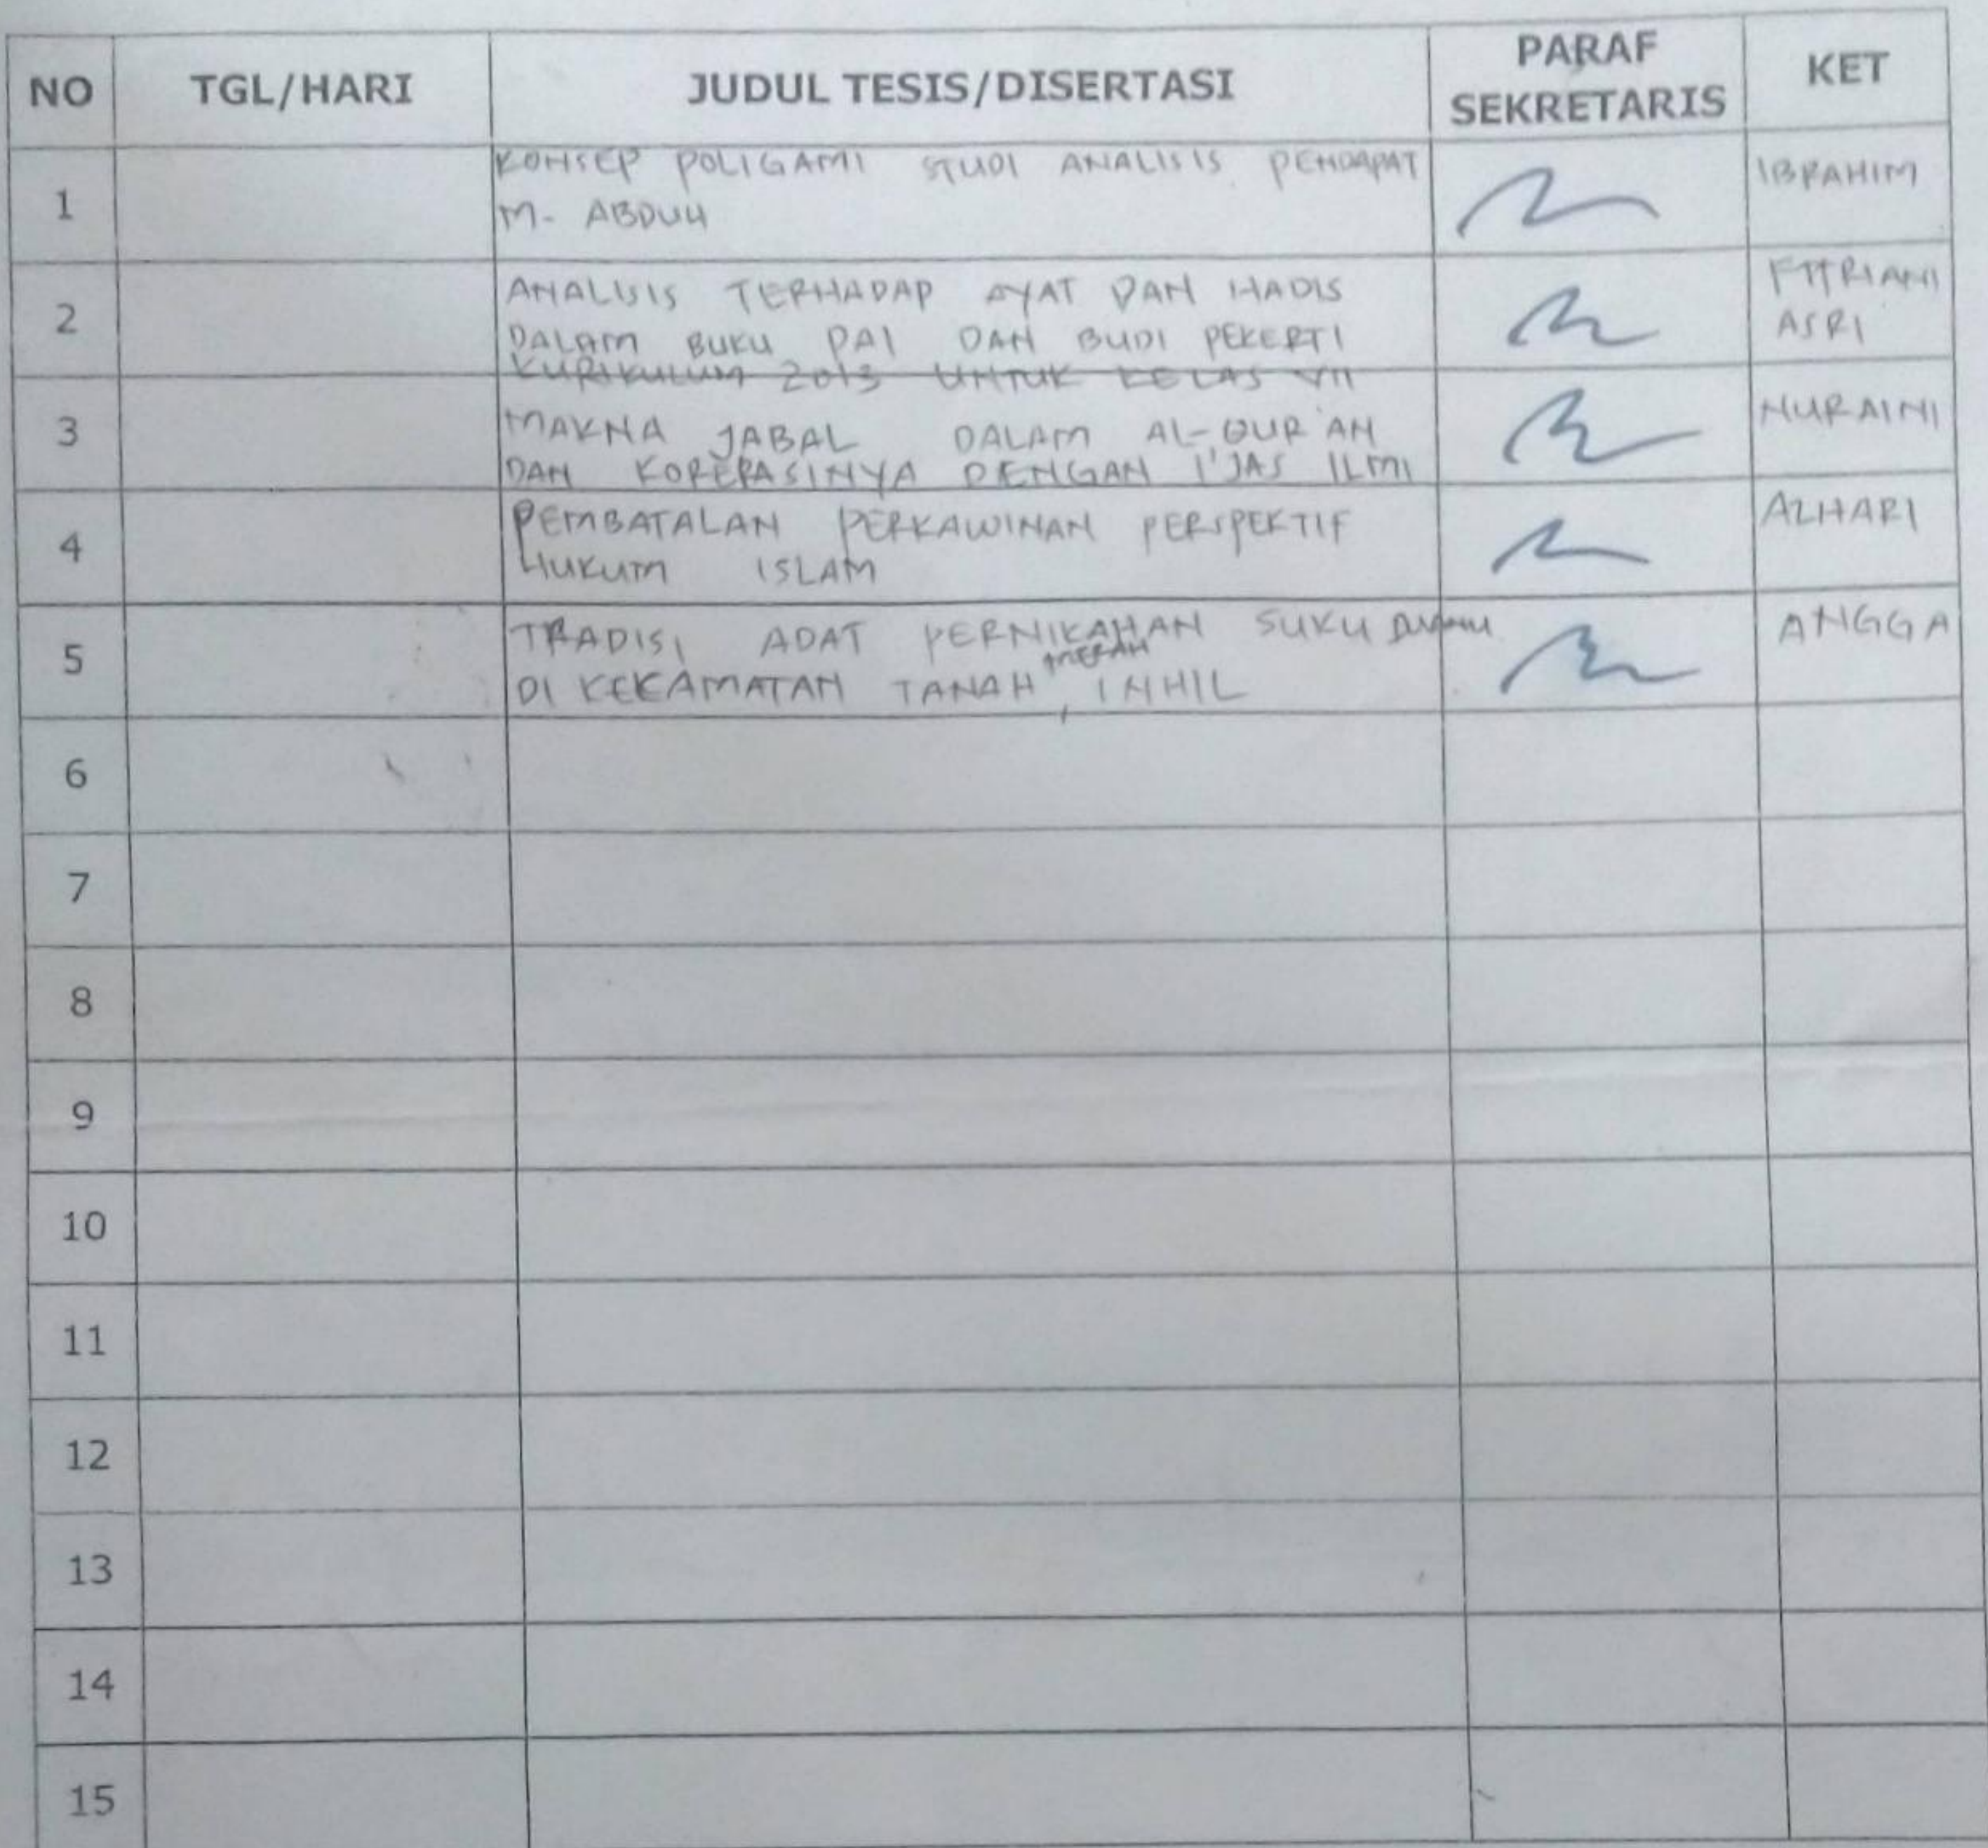 NO TGL/HARI JUDUL TESIS/DISERTASI PARAF SEKRETARIS KET
1 KONSEP POLIGAMI STUDI ANALISIS PENDAPAT IBRAHIM
M. ABDUH
2 ANALISIS TERHADAP AYAT DAN HADIS FITRIANI
DALAM BUKU PAI DAN BUDI PEKERTI ASRI
KURIKULUM 2013 UNTUK KELAS VII
3 MAKNA JABAL DALAM AL-QUR'AN NURAINI
DAN KORERASINYA DENGAN I'JAS ILMI
4 PEMBATALAN PERKAWINAN PERSPEKTIF AZHARI
HUKUM ISLAM
5 TRADISI ADAT PERNIKAHAN SUKU ANGGA
DI KECAMATAN TANAH MERAH, INHIL
6
7
8
9
10
11
12
13
14
15